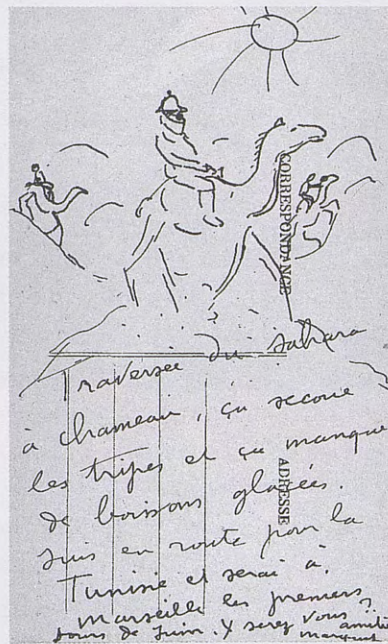 CORRESPONDANCE
ADRESSE
Traversée du Sahara
à chameau, ça secoue
les tripes et ça manque
de boissons glacées.
Suis en route pour la
Tunisie et serai à
Marseille les premiers
jours de juin. Y serez vous ?